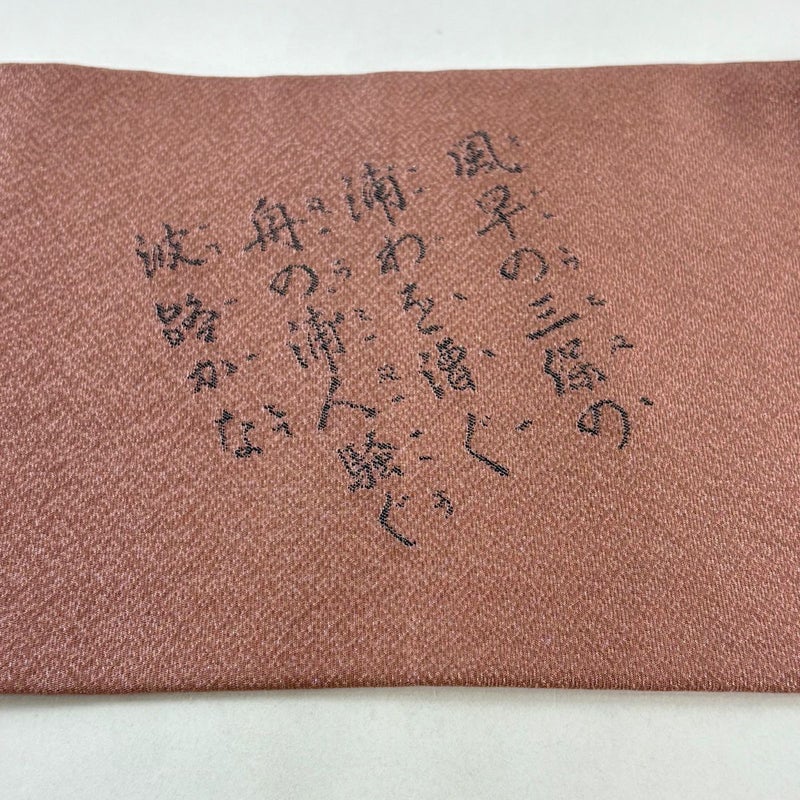 風早の三保の
浦わを漕ぐ
舟の浦人騒ぐ
波路かな